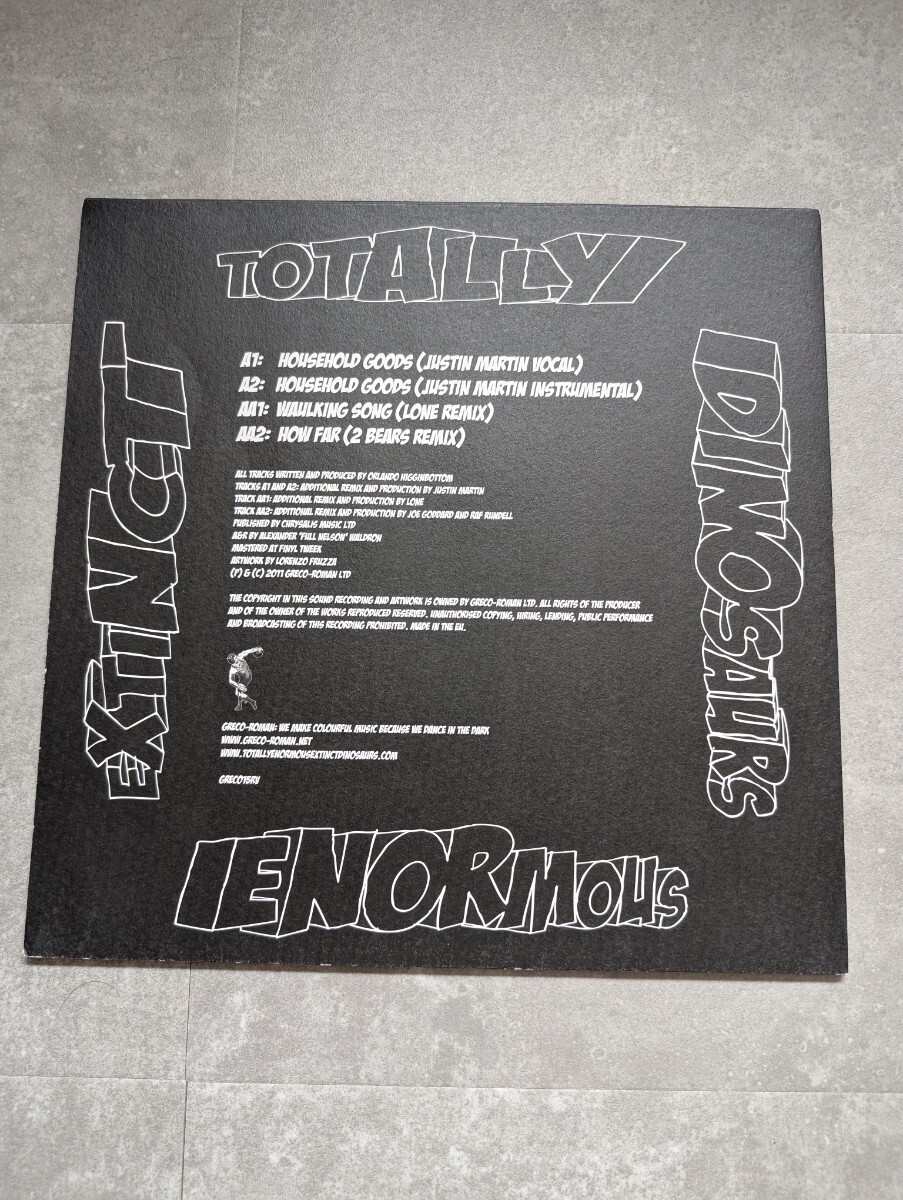 TOTALLY
ENORMOUS
EXTINCT
DINOSAURS
A1: HOUSEHOLD GOODS (JUSTIN MARTIN VOCAL)
A2: HOUSEHOLD GOODS (JUSTIN MARTIN INSTRUMENTAL)
AA1: WAULKING SONG (LONE REMIX)
AA2: HOW FAR (2 BEARS REMIX)
ALL TRACKS WRITTEN AND PRODUCED BY ORLANDO HIGGINBOTTOM
TRACKS A1 AND A2: ADDITIONAL REMIX AND PRODUCTION BY JUSTIN MARTIN
TRACK AA1: ADDITIONAL REMIX AND PRODUCTION BY LONE
TRACK AA2: ADDITIONAL REMIX AND PRODUCTION BY JOE GODDARD AND RAF RUNDELL
PUBLISHED BY CHRYSALIS MUSIC LTD
A&R BY ALEXANDER 'FULL NELSON' WALDRON
MASTERED AT FINYL TWEEK
ARTWORK BY LORENZO FRUZZA
(P) & (C) 2011 GRECO-ROMAN LTD
THE COPYRIGHT IN THIS SOUND RECORDING AND ARTWORK IS OWNED BY GRECO-ROMAN LTD. ALL RIGHTS OF THE PRODUCER
AND OF THE OWNER OF THE WORKS REPRODUCED RESERVED. UNAUTHORISED COPYING, HIRING, LENDING, PUBLIC PERFORMANCE
AND BROADCASTING OF THIS RECORDING PROHIBITED. MADE IN THE EU.
GRECO-ROMAN: WE MAKE COLOURFUL MUSIC BECAUSE WE DANCE IN THE DARK
WWW.GRECO-ROMAN.NET
WWW.TOTALLYENORMOUSEXTINCTDINOSAURS.COM
GRECO15RV